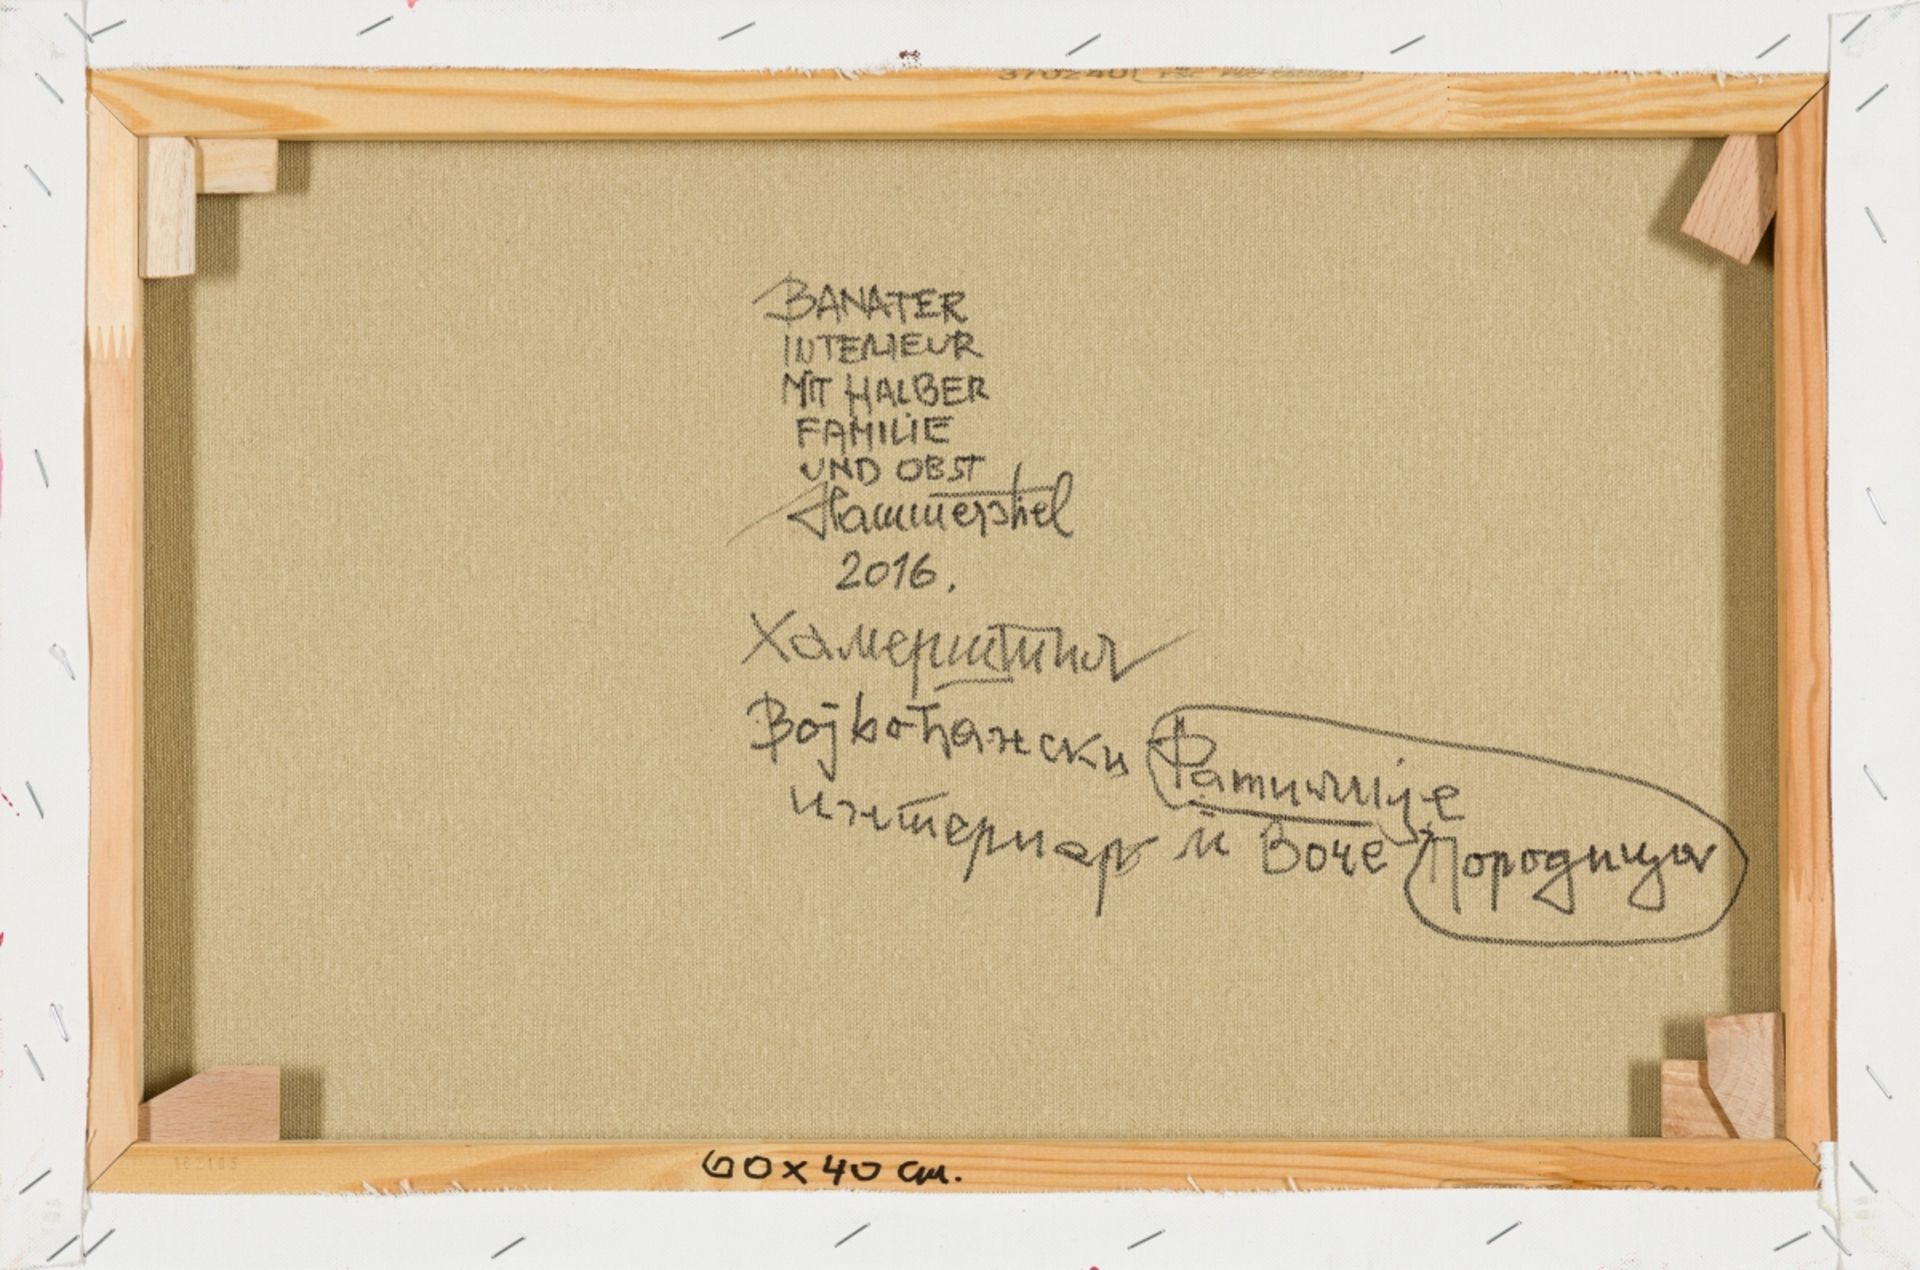 BANATER
INTERIEUR
MIT HALBER
FAMILIE
UND OBST
Hammerstiel
2016.
Хамерштил
Војвођански Фамилије
интеријар и Воће Породица
60 x 40 cm.